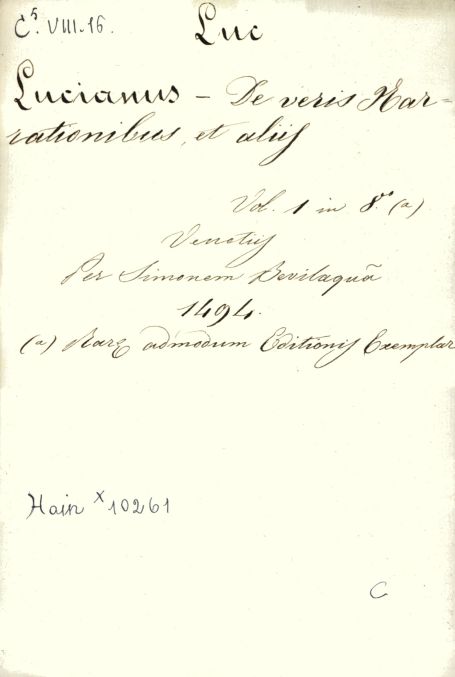 C⁵. VIII.16.
Luc
Lucianus – De veris Nar=
rationibus, et aliis
Vol. 1 in 8.º (a)
Venetiis
Per Simonem Bevilaquã
1494.
(a) Raræ admodum Editionis Exemplar
Hain ˣ10261
C